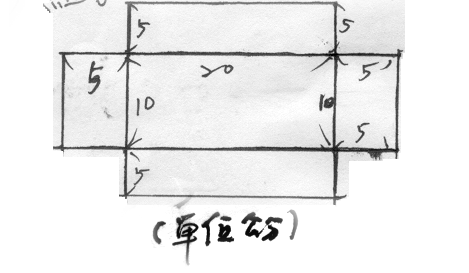 5 5
5 20 5
10 10
5
5
(单位公分)